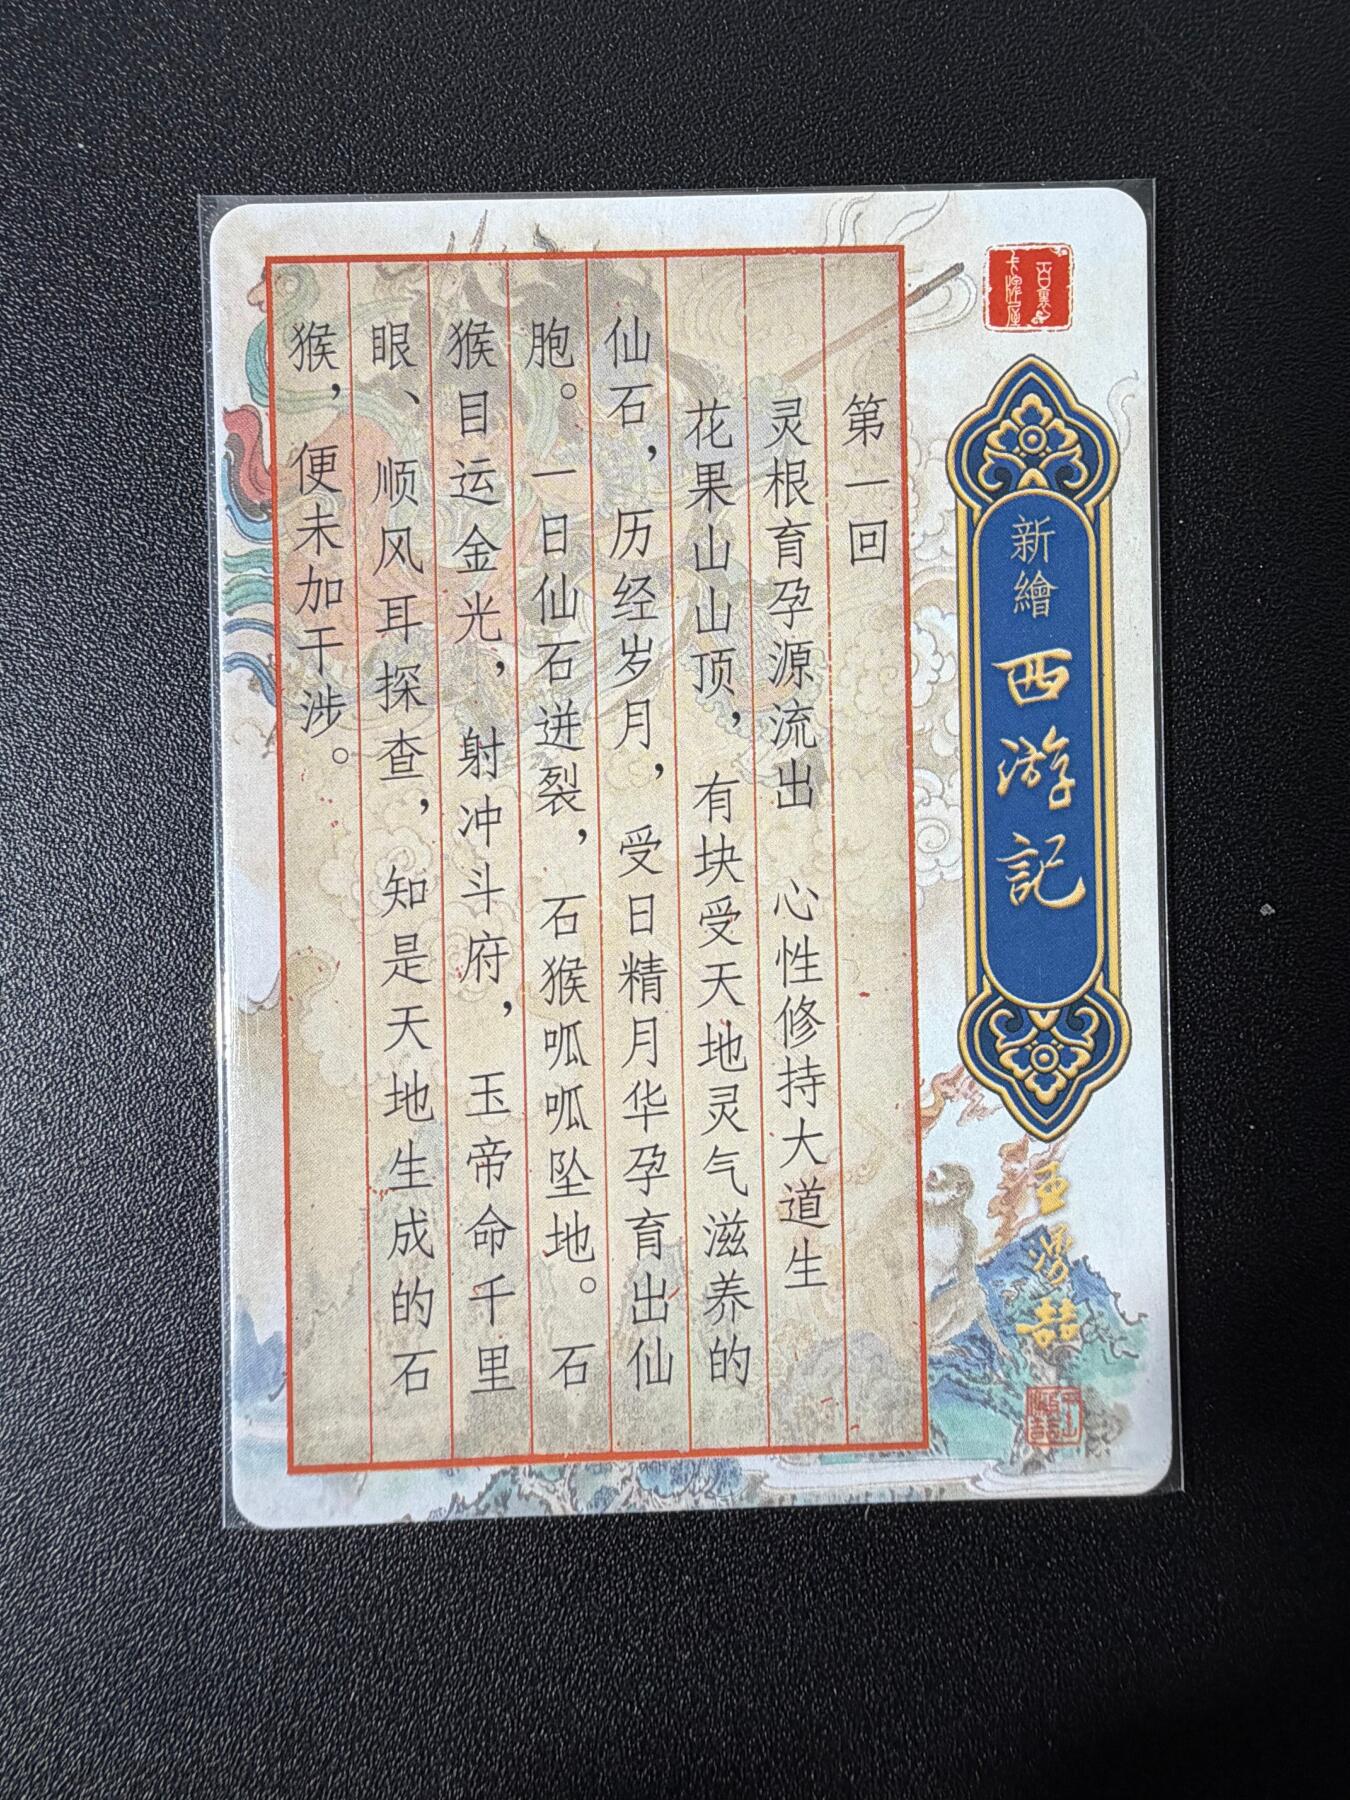 新繪
西游記
王漫喆
第一回
灵根育孕源流出　心性修持大道生
花果山山顶，有块受天地灵气滋养的
仙石，历经岁月，受日精月华孕育出仙
胞。一日仙石迸裂，石猴呱呱坠地。石
猴目运金光，射冲斗府，玉帝命千里
眼、顺风耳探查，知是天地生成的石
猴，便未加干涉。